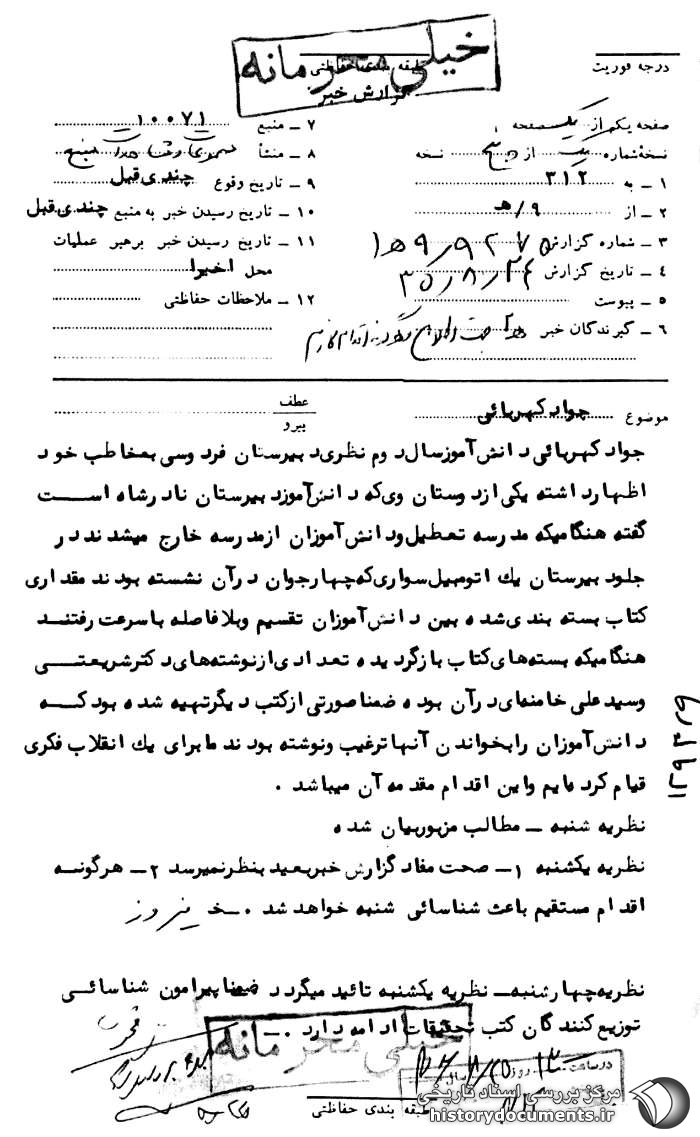 خیلی محرمانه
درجه فوریت
طبقه بندی حفاظتی
گزارش خبر
صفحه یکم از یک صفحه
نسخهٔ شماره یک از پنج نسخه
۱ – به ۳۱۲
۲ – از ۹/هـ
۳ – شماره گزارش ۹۲۷۵/۹هـ۱
۴ – تاریخ گزارش ۳۵/۸/۲۴
۵ – پیوست
۶ – گیرندگان خبر
۷ – منبع ۱۰۰۷۱
۸ – منشأ منبع
۹ – تاریخ وقوع چندی قبل
۱۰ – تاریخ رسیدن خبر به منبع چندی قبل
۱۱ – تاریخ رسیدن خبر برهبر عملیات
محل اخیرا
۱۲ – ملاحظات حفاظتی
موضوع جواد کهربائی
عطف
پیرو
جواد کهربائی دانش آموز سال دوم نظری دبیرستان فردوسی بمخاطب خود
اظهار داشته یکی از دوستان وی که دانش آموز دبیرستان نادرشاه است
گفته هنگامیکه مدرسه تعطیل و دانش آموزان از مدرسه خارج میشدند در
جلو دبیرستان یك اتومبیل سواری که چهار جوان در آن نشسته بودند مقداری
کتاب بسته بندی شده بین دانش آموزان تقسیم و بلافاصله با سرعت رفتند
هنگامیکه بسته های کتاب باز گردیده تعدادی از نوشته های دکتر شریعتی
و سید علی خامنه ای در آن بوده ضمنا صورتی از کتب دیگر تهیه شده بود که
دانش آموزان را بخواندن آنها ترغیب و نوشته بودند ما برای یك انقلاب فکری
قیام کرده ایم و این اقدام مقدمه آن میباشد .
نظریه شنبه – مطالب مزبور بیان شده
نظریه یکشنبه ۱– صحت مفاد گزارش خبر بعید بنظر نمیرسد ۲– هرگونه
اقدام مستقیم باعث شناسائی شنبه خواهد شد .
نظریه چهارشنبه – نظریه یکشنبه تائید میگردد ضمنا پیرامون شناسائی
توزیع کنندگان کتب تحقیقات ادامه دارد .–
خیلی محرمانه
در ساعت روز
طبقه بندی حفاظتی
مرکز بررسی اسناد تاریخی
historydocuments.ir